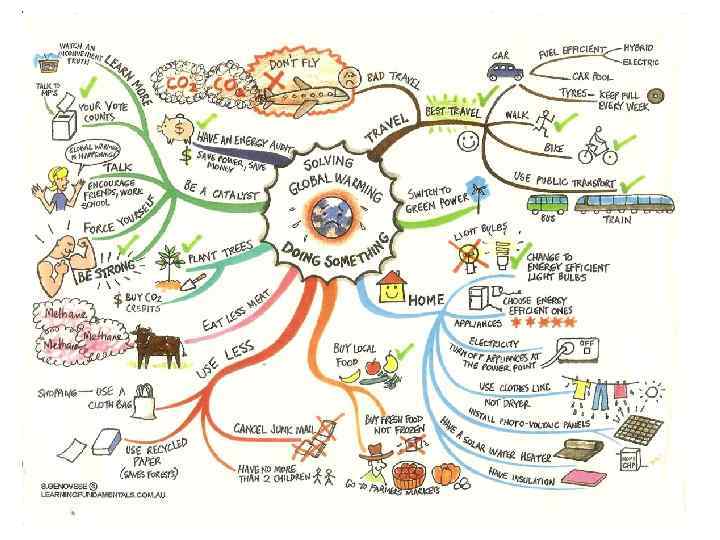 SOLVING
GLOBAL WARMING
DOING SOMETHING
TRAVEL
BAD TRAVEL
DON'T FLY
CO2
CO2
BEST TRAVEL
CAR
FUEL EFFICIENT
HYBRID
ELECTRIC
CAR POOL
TYRES - KEEP FULL
EVERY WEEK
WALK
BIKE
USE PUBLIC TRANSPORT
BUS
TRAIN
SWITCH TO
GREEN POWER
HOME
LIGHT BULBS
CHANGE TO
ENERGY EFFICIENT
LIGHT BULBS
APPLIANCES
CHOOSE ENERGY
EFFICIENT ONES
ELECTRICITY
TURN OFF APPLIANCES AT
THE POWER POINT
OFF
USE CLOTHES LINE
NOT DRYER
INSTALL PHOTO-VOLTAIC PANELS
HAVE A
SOLAR WATER HEATER
HAVE INSULATION
BUY LOCAL
FOOD
BUY FRESH FOOD
NOT FROZEN
GO TO FARMERS MARKETS
USE LESS
SHOPPING - USE A
CLOTH BAG
USE RECYCLED
PAPER
(SAVES FORESTS)
CANCEL JUNK MAIL
HAVE NO MORE
THAN 2 CHILDREN
EAT LESS MEAT
Methane
Methane
Methane
PLANT TREES
$ BUY CO2
CREDITS
BE A CATALYST
LEARN MORE
WATCH AN
INCONVENIENT
TRUTH
TALK TO
MPS
YOUR VOTE
COUNTS
GLOBAL WARMING
IS HAPPENING!
TALK
ENCOURAGE
FRIENDS, WORK
SCHOOL
FORCE YOURSELF
BE STRONG
HAVE AN ENERGY AUDIT
$ SAVE POWER, SAVE
MONEY
S.GENOVESE ©
LEARNINGFUNDAMENTALS.COM.AU